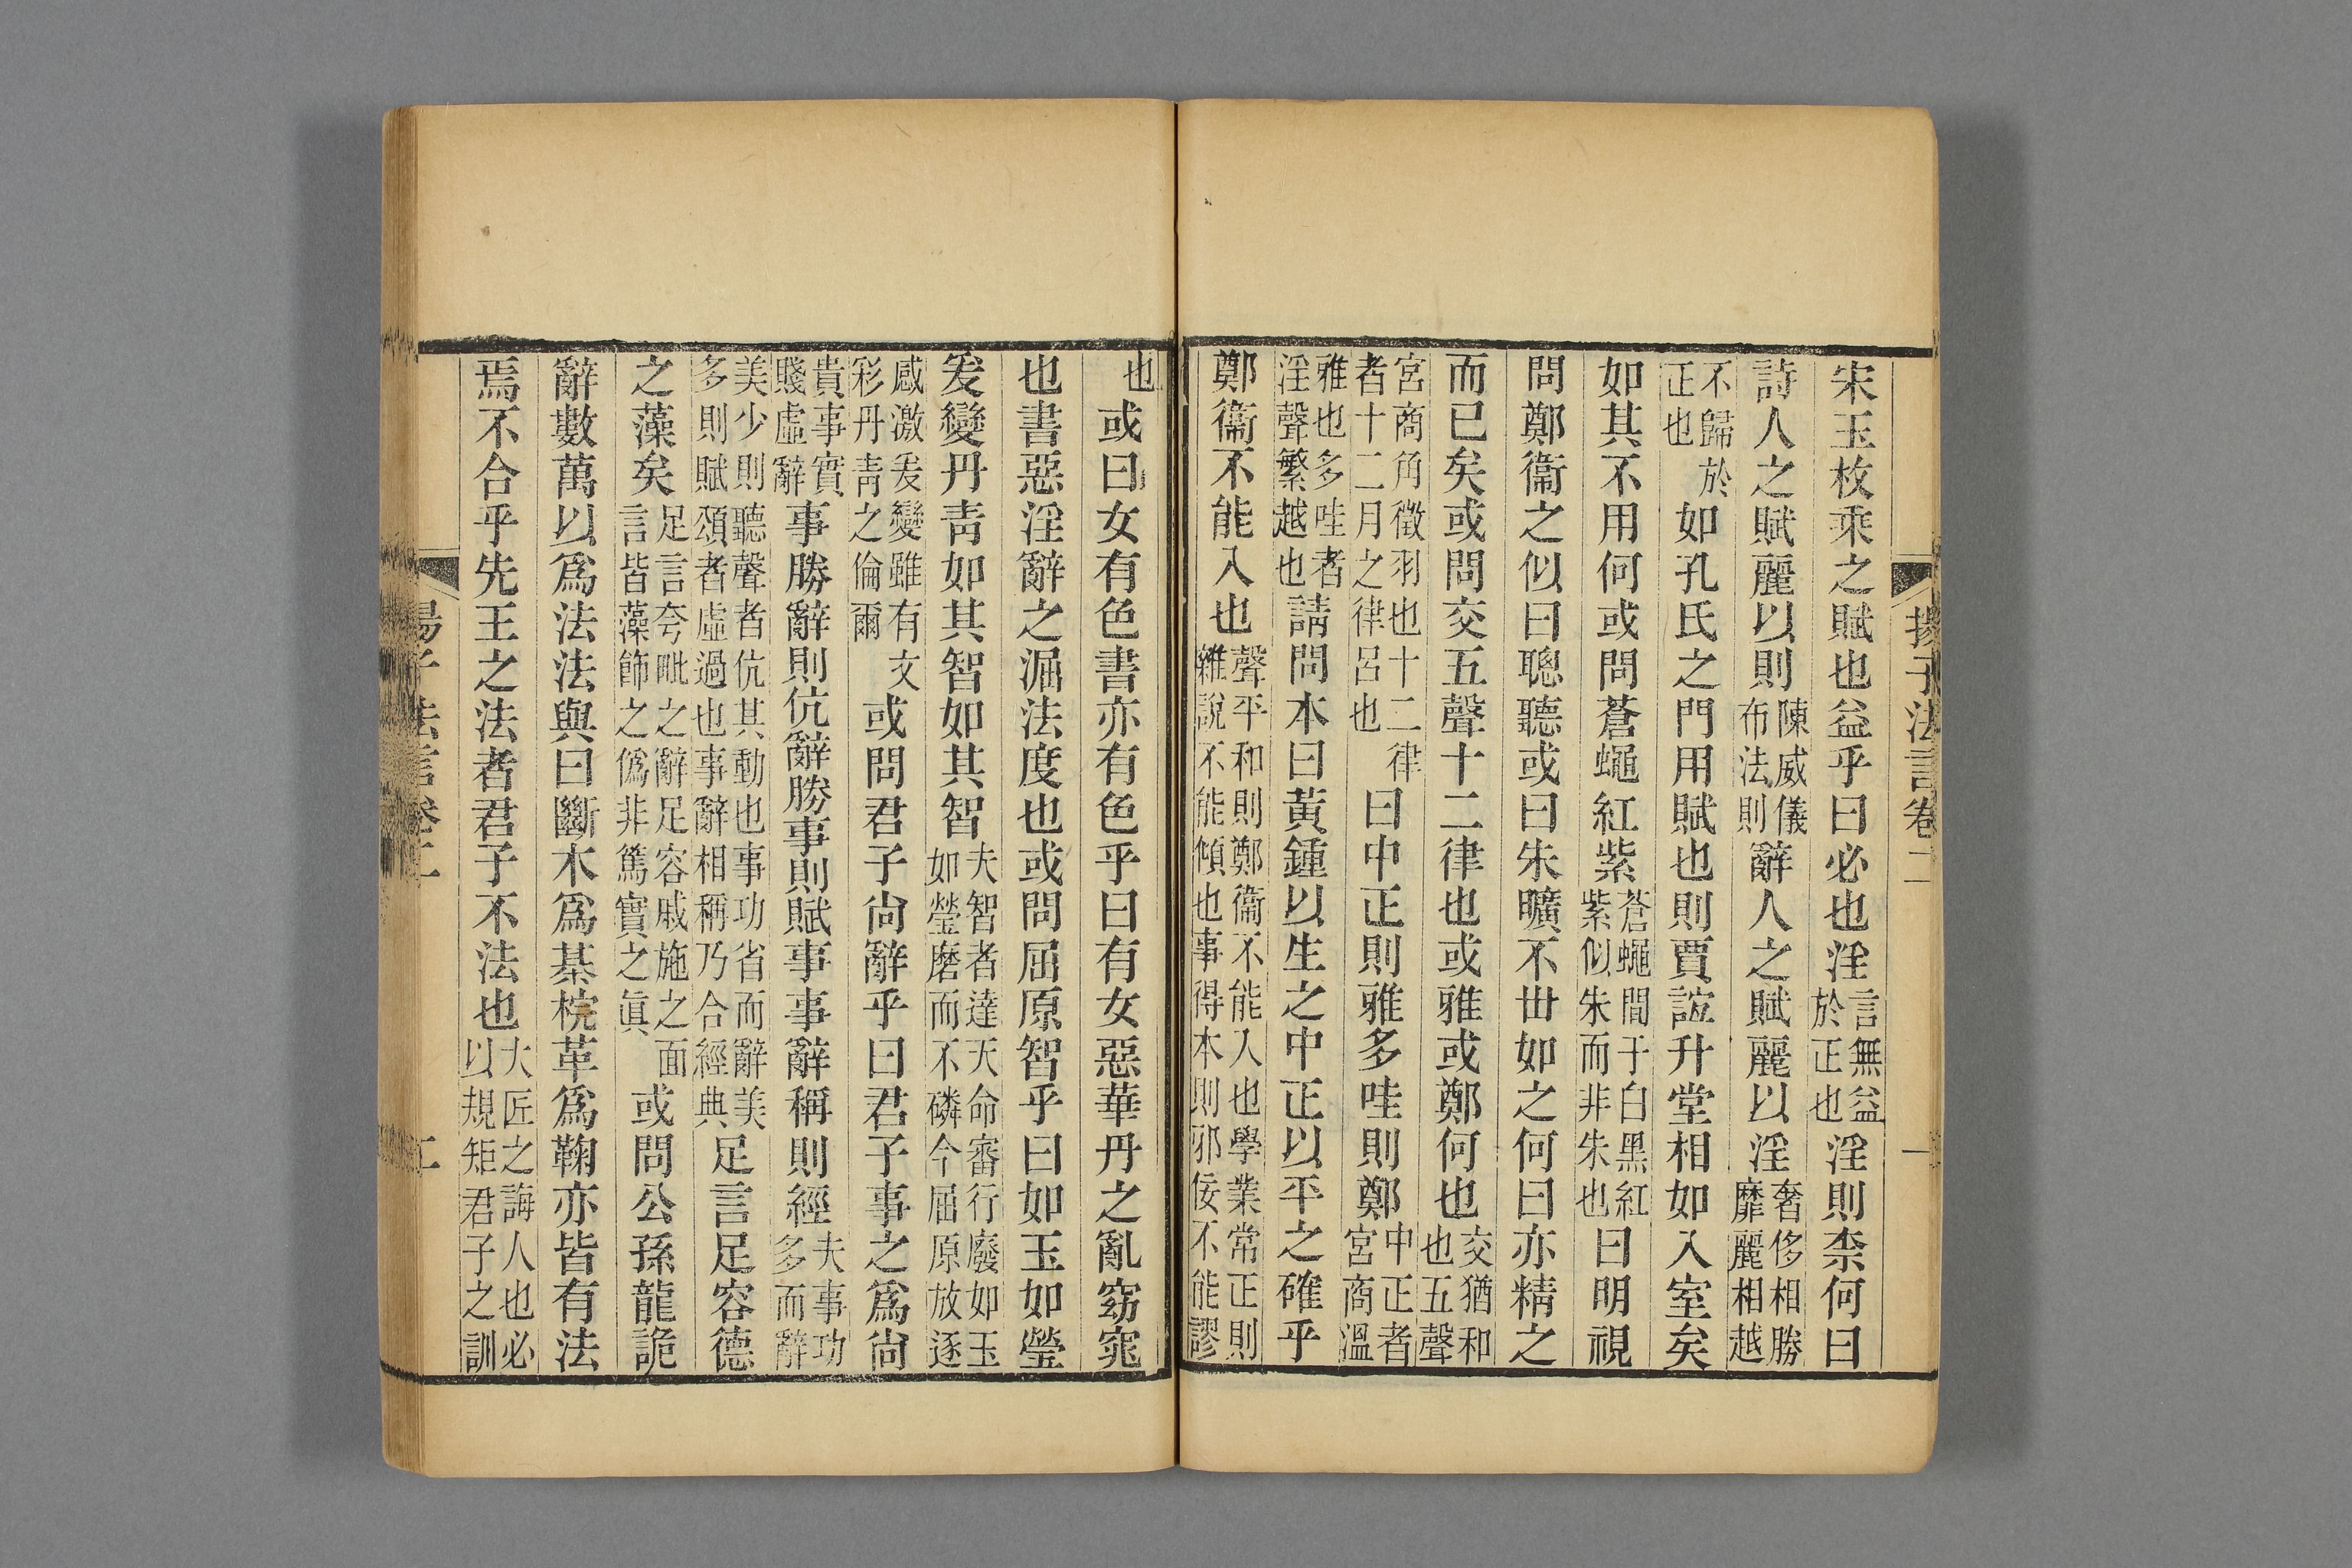 揚子法言卷二 一
宋玉枚乘之賦也益乎曰必也淫言無益於正也淫則柰何曰
詩人之賦麗以則陳威儀布法則辭人之賦麗以淫奢侈相勝靡麗相越
不歸於正也如孔氏之門用賦也則賈誼升堂相如入室矣
如其不用何或問蒼蠅紅紫蒼蠅間于白黑紅紫似朱而非朱也曰明視
問鄭衞之似曰聰聽或曰朱曠不世如之何曰亦精之
而已矣或問交五聲十二律也或雅或鄭何也交猶和也五聲
宮商角徵羽也十二律者十二月之律呂也曰中正則雅多哇則鄭中正者宮商溫
雅也多哇者淫聲繁越也請問本曰黃鍾以生之中正以平之確乎
鄭衞不能入也聲平和則鄭衞不能入也學業常正則雜說不能傾也事得本則邪佞不能謬
也或曰女有色書亦有色乎曰有女惡華丹之亂窈窕
也書惡淫辭之淈法度也或問屈原智乎曰如玉如瑩
爰變丹靑如其智如其智夫智者達天命審行廢如玉如瑩磨而不磷今屈原放逐
感激爰變雖有文彩丹靑之倫爾或問君子尙辭乎曰君子事之爲尙
事勝辭則伉辭勝事則賦事事辭稱則經夫事功多而辭
貴事實賤虛辭
美少則聽聲者伉其動也事功省而辭美多則賦頌者虛過也事辭相稱乃合經典足言足容德
之藻矣足言夸毗之辭足容戚施之面言皆藻飾之僞非篤實之眞或問公孫龍詭
辭數萬以爲法法與曰斷木爲棊梡革爲鞠亦皆有法
焉不合乎先王之法者君子不法也大匠之誨人也必以規矩君子之訓
子法言卷二 二